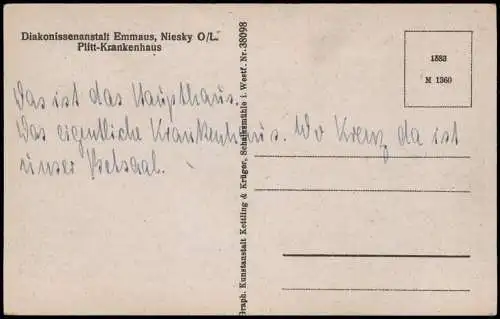 Diakonissenanstalt Emmaus, Niesky O/L.
Plitt-Krankenhaus
1583
M 1360
Das ist das Haupthaus.
Das eigentliche Krankenhaus. Wo Kreuz da ist
unser Betsaal.
Graph. Kunstanstalt Kettling & Krüger, Schalksmühle i. Westf. Nr. 38098